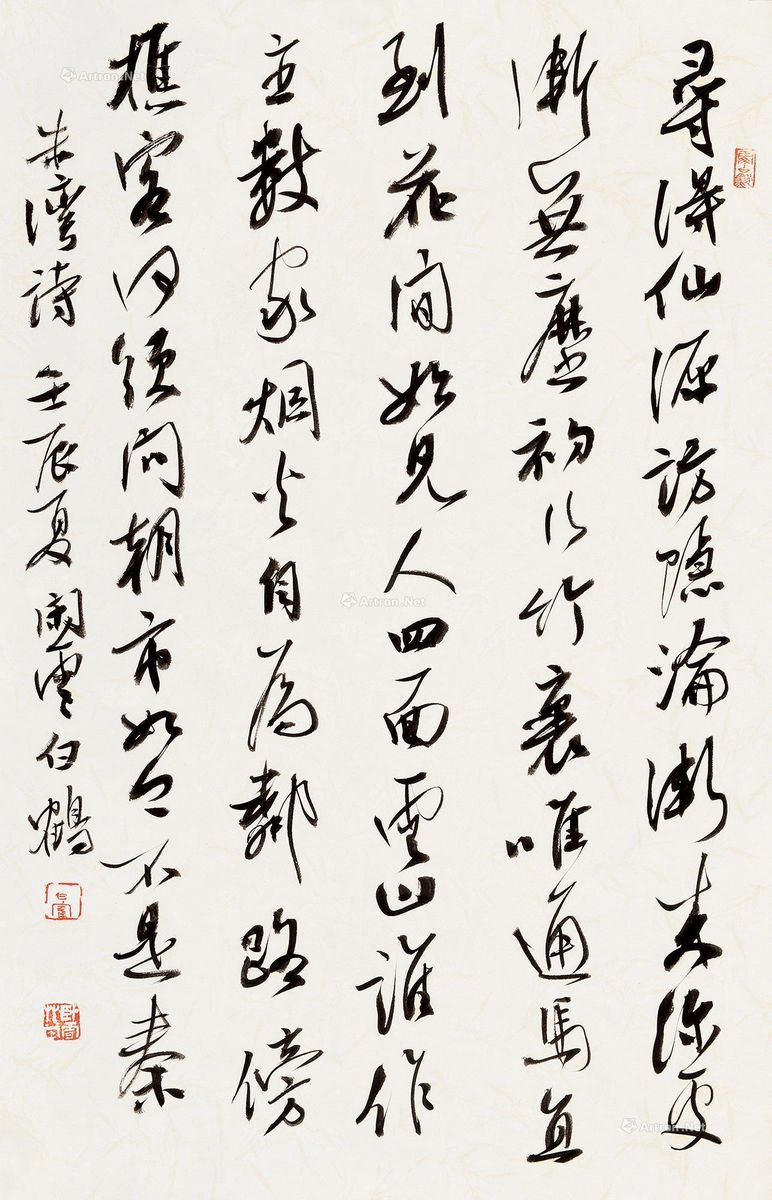 尋得仙源訪隱淪漸来深處
漸無塵初行竹裏唯通馬直
到花間始見人四面雲山誰作
主數家烟火自為鄰路傍
樵客何須問朝市如今不是秦
朱灣詩 壬辰夏 閑雲白鶴
Artron.Net
Artron.Net
Artron.Net
Artron.Net